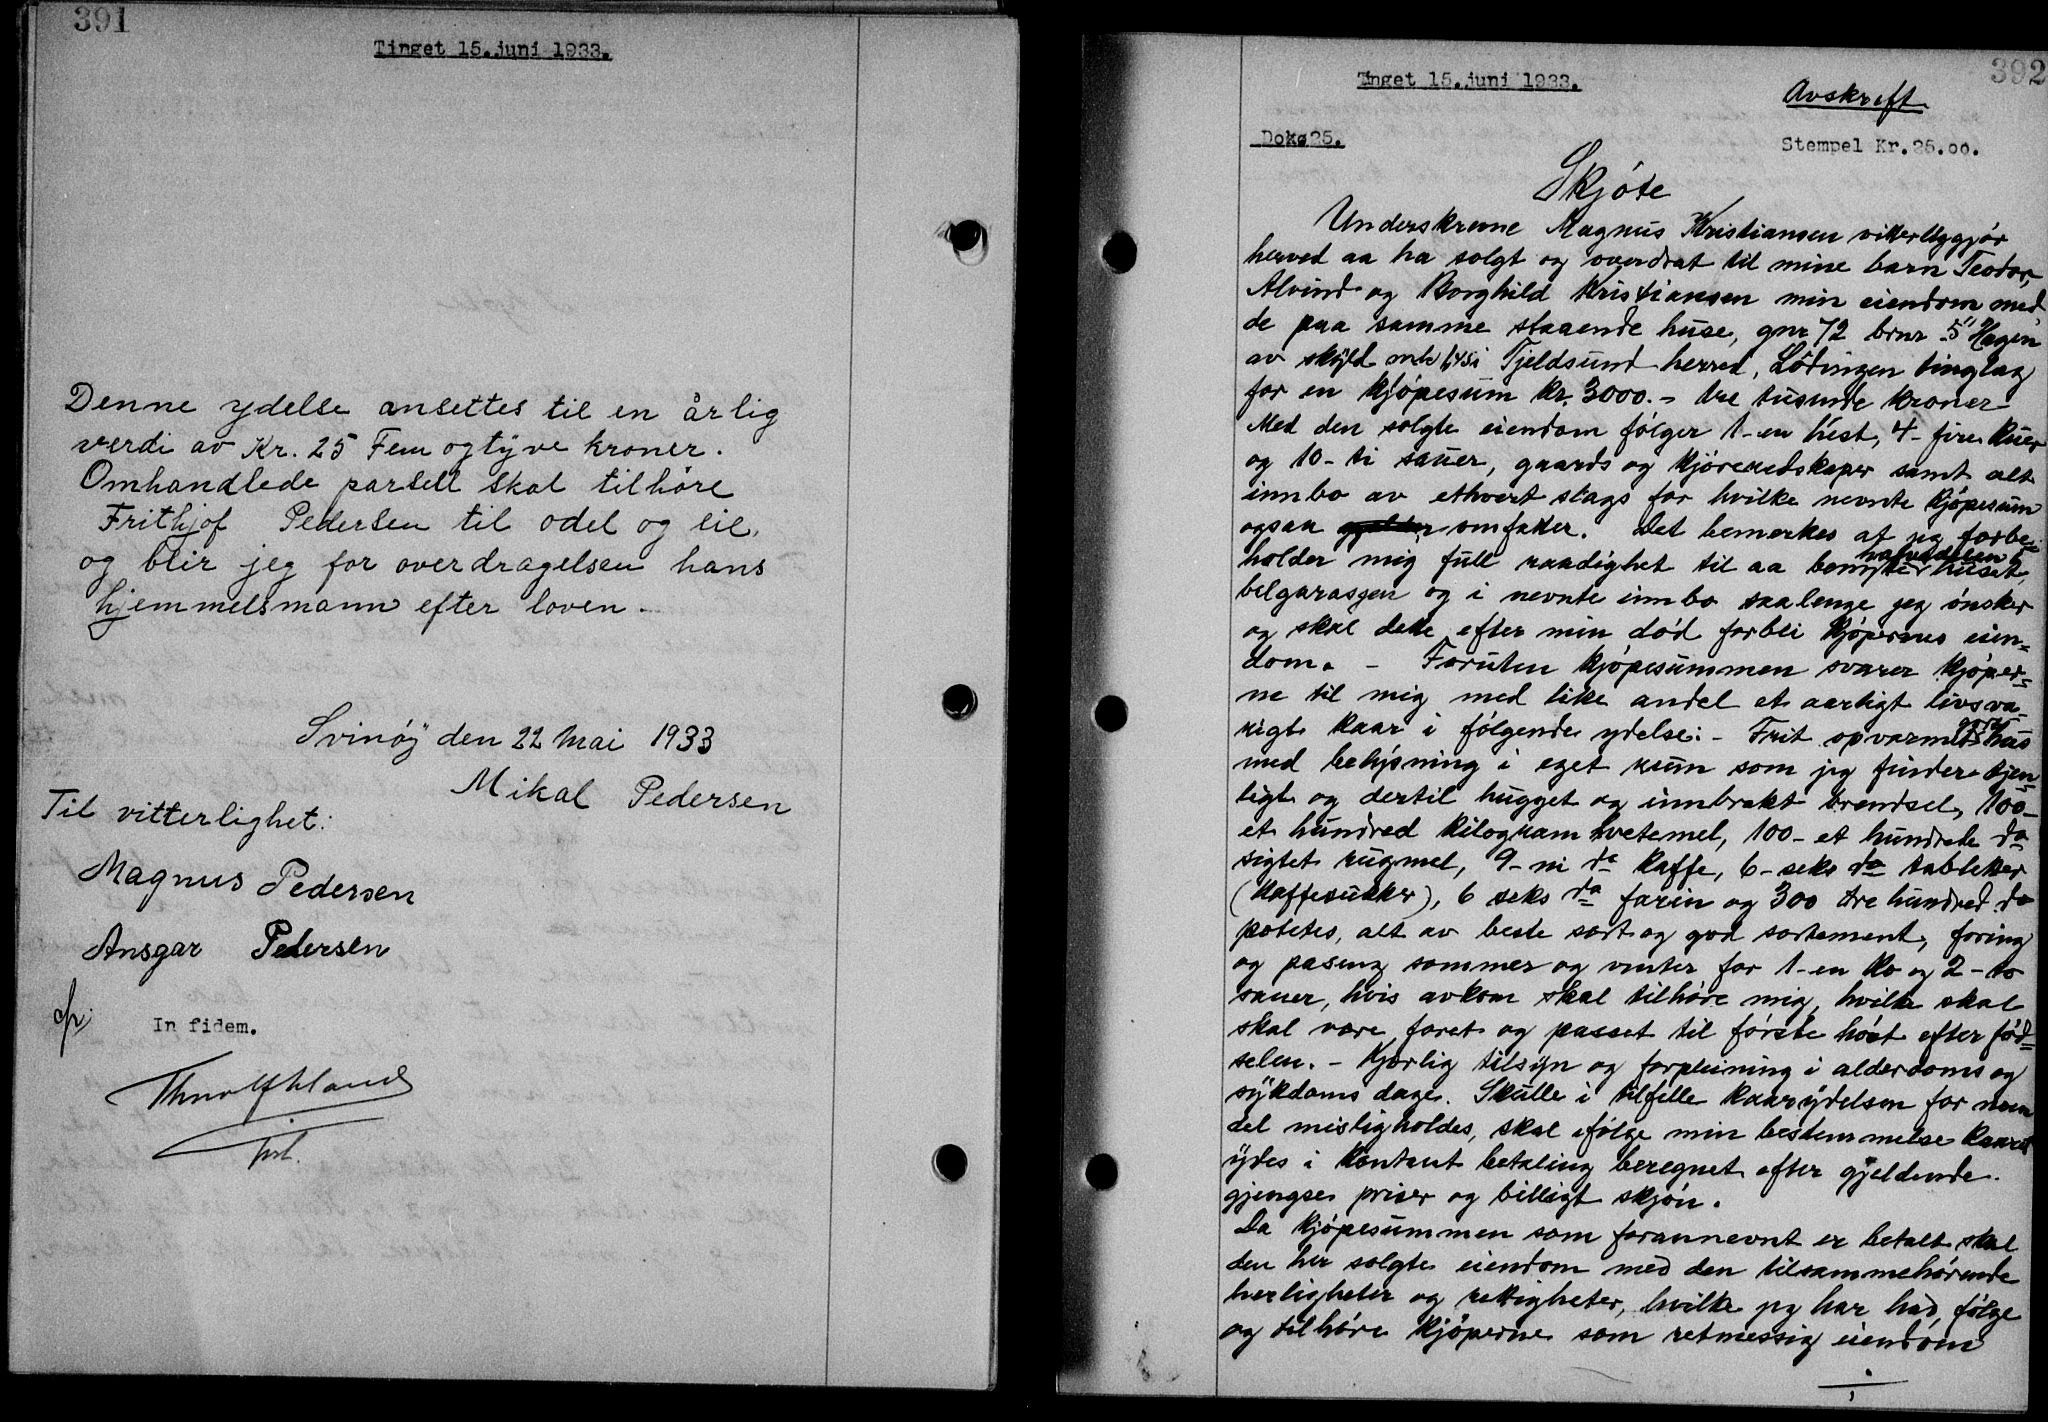 391
Tinget 15. juni 1933.
Denne ydelse ansettes til en årlig
verdi av Kr. 25 Fem og tyve kroner.
Omhandlede parsell skal tilhöre
Frithjof Pedersen til odel og eie,
og blir jeg for overdragelsen hans
hjemmelsmann efter loven.
Svinöy den 22 mai 1933
Mikal Pedersen
Til vitterlighet:
Magnus Pedersen
Ansgar Pedersen
In fidem.
392
Tinget 15. juni 1933.
Avskrift
Dok 25.
Stempel Kr. 25.00.
Skjöte
Underskrevne Magnus Kristiansen vitterliggjör
herved aa ha solgt og overdrat til mine barn Teodor,
Alvind og Borghild Kristiansen min eiendom med
de paa samme staaende huse, gnr 72 brnr 5 "Hagen"
av skyld mk 1,45 i Tjeldsund herred, Lödingen tinglag
for en kjöpesum kr. 3000.- tre tusende kroner
Med den solgte eiendom fölger 1-en hest, 4-fire kuer
og 10-ti sauer, gaards og kjöreredskaper samt alt
innbo av ethvert slags for hvilke nevnte kjöpesum
ogsaa omfatter. Det bemerkes at jeg forbe-
holder mig full raadighet til aa benytte halvdelen huset,
og i nevnte innbo saalenge jeg önsker
og skal dette efter min död forbli kjöpernes eien=
dom. - Foruten kjöpesummen svarer kjöper=
ne til mig med like andel et aarligt livsva-
rigt kaar i fölgende ydelse:- Frit opvarmet godt hus
med belysning i eget rum som jeg finder tjen=
ligt og dertil hugget og innbrakt brendsel, 100-
et hundred kilogram hvetemel, 100-et hundrede do
sigtet rugmel, 9-ni do kaffe, 6-seks do tabletter
(Kaffesukker), 6 seks do farin og 300 tre hundred do
potetes, alt av beste sort og god sortement, foring
og pasing sommer og vinter for 1-en ko og 2-to
sauer, hvis avkom skal tilhöre mig, hvilke skal
skal være foret og passet til förste höst efter föd=
selen. - Kjærlig tilsyn og forpleining i alderdoms og
sykdoms dage. Skulle i tilfelle kaarydelsen for noen
del misligholdes, skal ifölge min bestemmelse kaaret
ydes i kontant betaling beregnet efter gjeldende
gjengse priser og billigt skjön.
Da kjöpesummen som forannevnt er betalt skal
den her solgte eiendom med den tilsammehörende
herligheter og rettigheter, hvilke jeg har had, fölge
og tilhöre kjöperne som retmessig eiendom